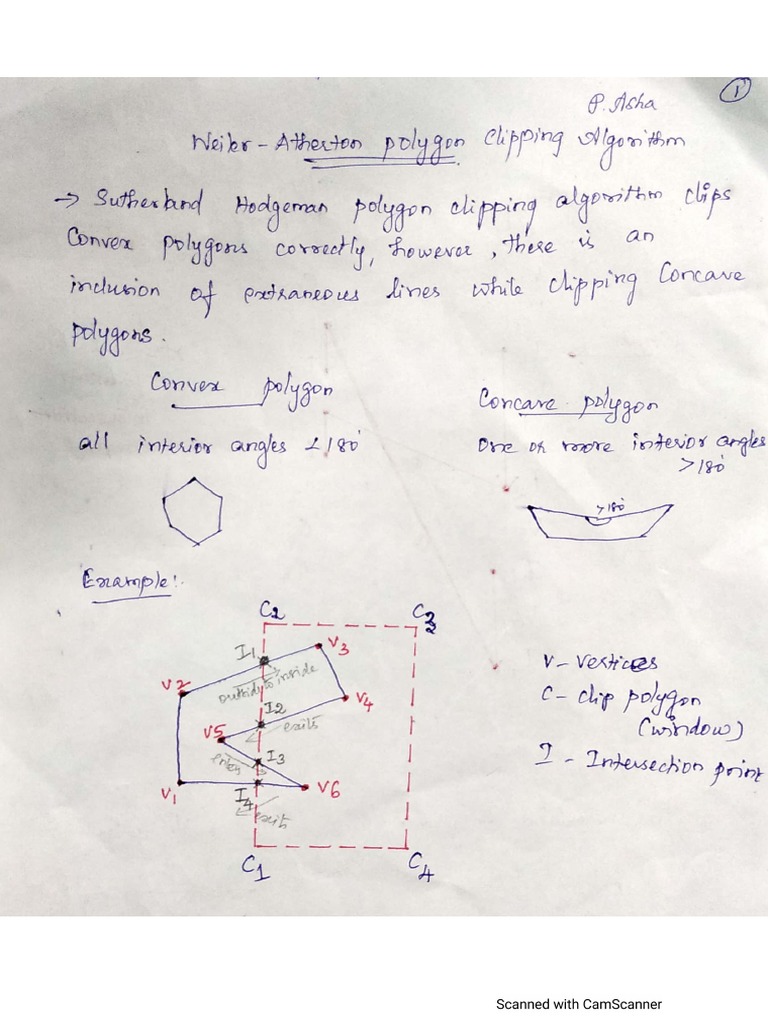 1
P. Asha
Weiler-Atherton polygon clipping Algorithm
→ Sutherland Hodgeman polygon clipping algorithm clips
Convex polygons correctly, however, there is an
inclusion of extraneous lines while clipping Concave
polygons.
Convex polygon
Concave polygon
all interior angles < 180°
One or more interior angles
> 180°
> 180°
Example:
C2
C3
I1
V3
V2
outside to inside
V4
I2
exits
V5
I3
enters
V1
I4
V6
exits
C1
C4
V - vertices
C - clip polygon
(window)
I - Intersection point
Scanned with CamScanner